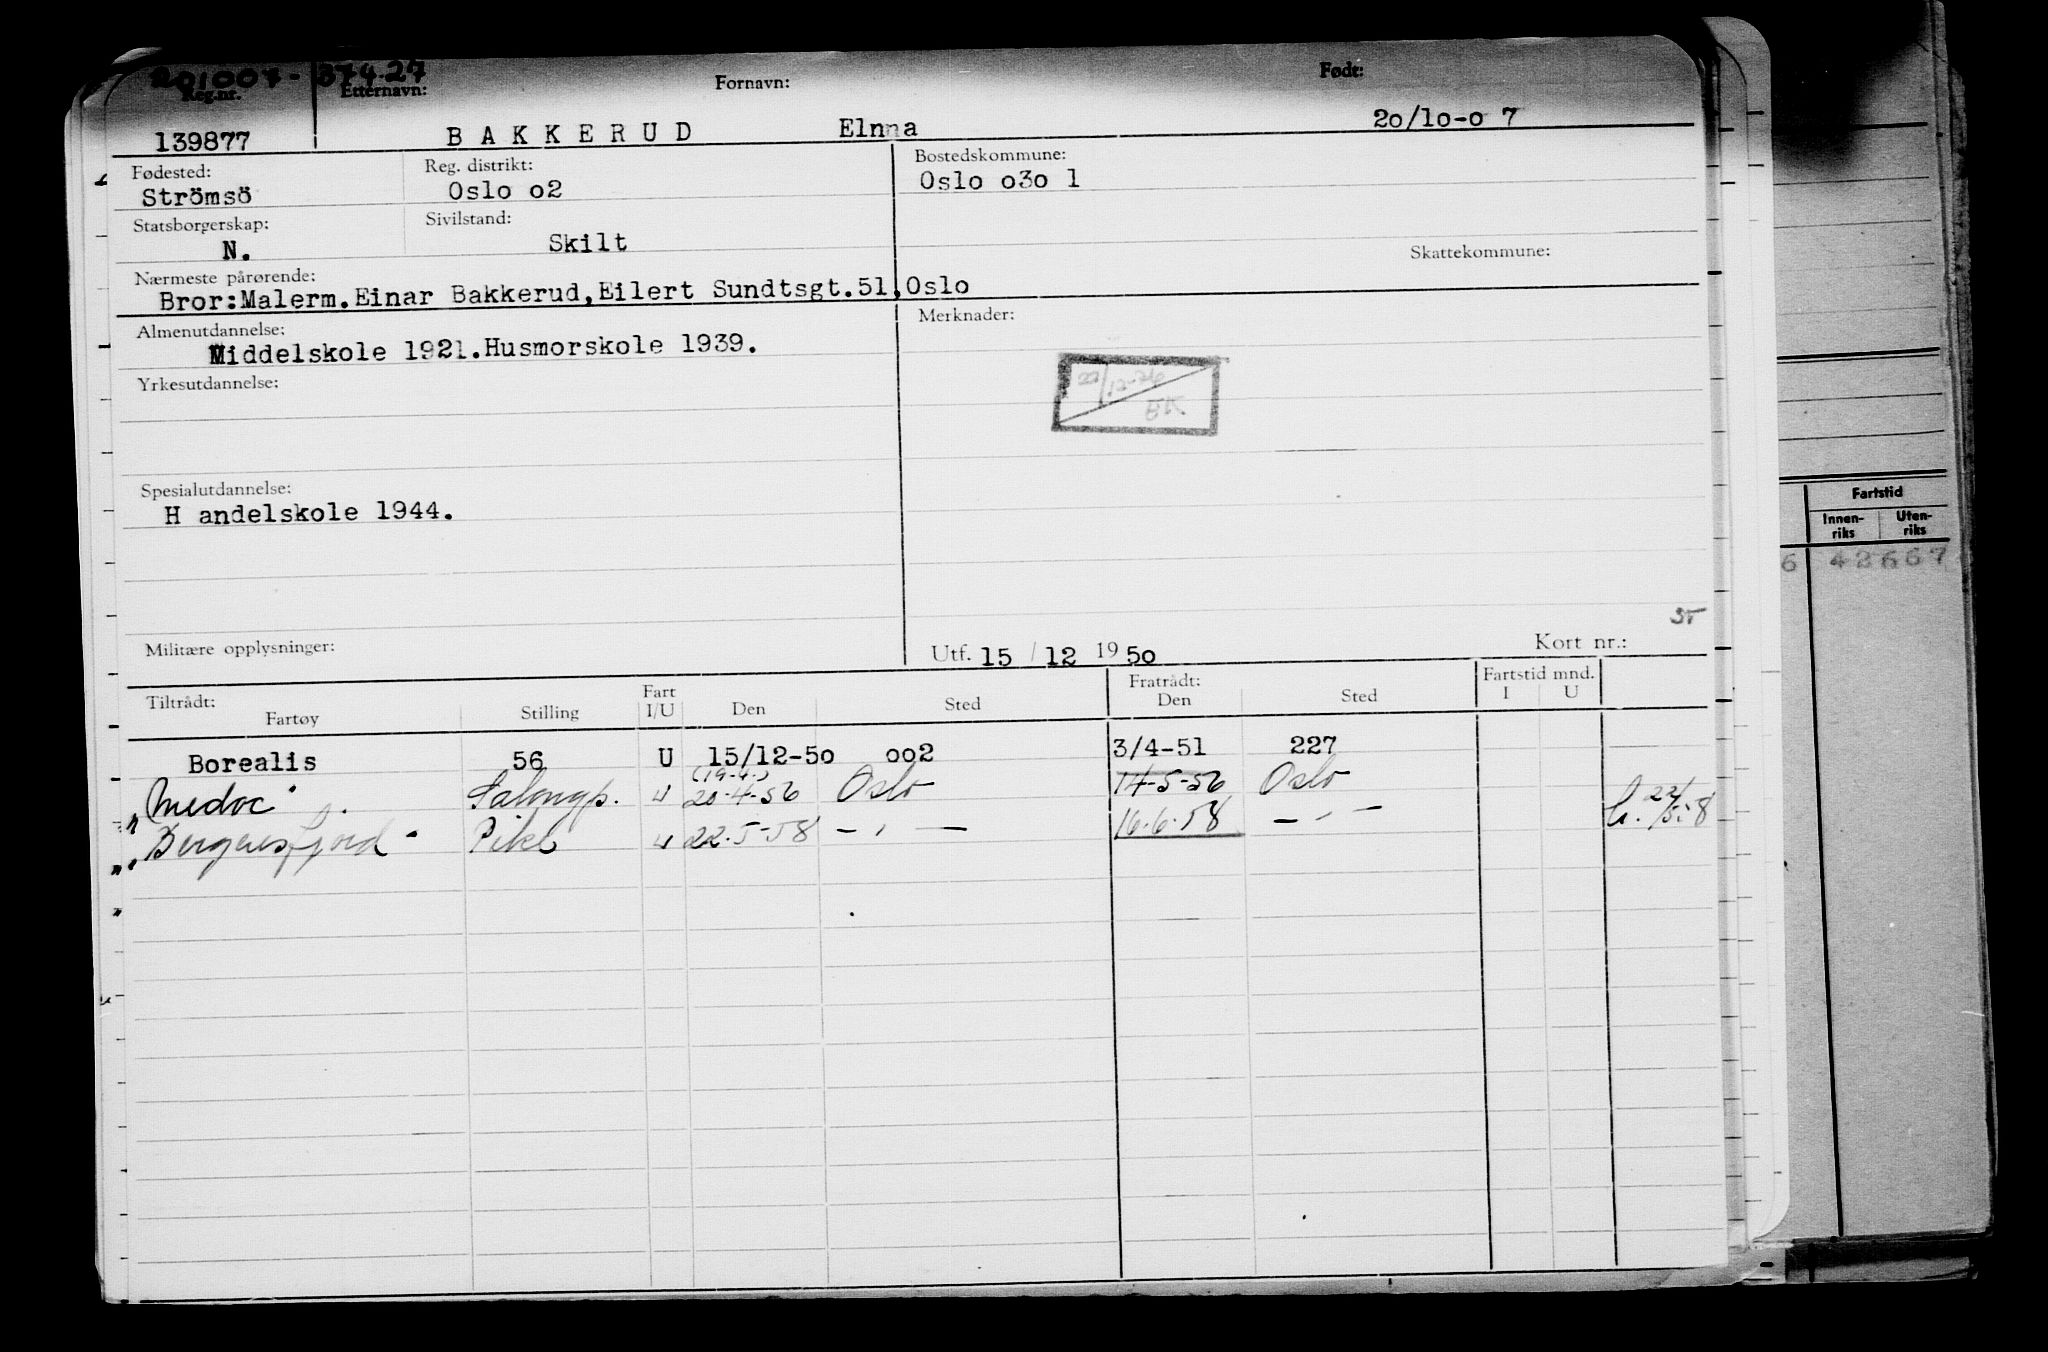 201007-37427
Reg.nr. Etternavn: Fornavn: Født:
139877 BAKKERUD Elnna 20/10-07
Fødested: Reg. distrikt: Bostedskommune:
Strömsö Oslo o2 Oslo o3o 1
Statsborgerskap: Sivilstand:
N. Skilt Skattekommune:
Nærmeste pårørende:
Bror:Malerm.Einar Bakkerud,Eilert Sundtsgt.51,Oslo
Almenutdannelse: Merknader:
Middelskole 1921.Husmorskole 1939.
22/12-76
EK
Yrkesutdannelse:
Spesialutdannelse:
H andelskole 1944.
Militære opplysninger: Utf. 15 / 12 1950 Kort nr.:
Tiltrådt: Fratrådt: Fartstid mnd.
Fartøy Stilling Fart I/U Den Sted Den Sted I U
Borealis 56 U 15/12-50 oo2 3/4-51 227
(19-4.)
"Medoc" Salongp. U 20-4-56 Oslo 14-5-56 Oslo
"Bergensfjord" Pike U 22.5-58 - " - 16.6.58 - " - 22/5.58
Fartstid
Innen-riks Uten-riks
6 42667